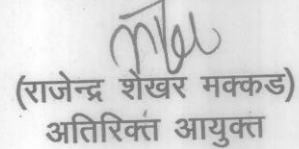 (राजेन्द्र शेखर मक्कड)
अतिरिक्त आयुक्त